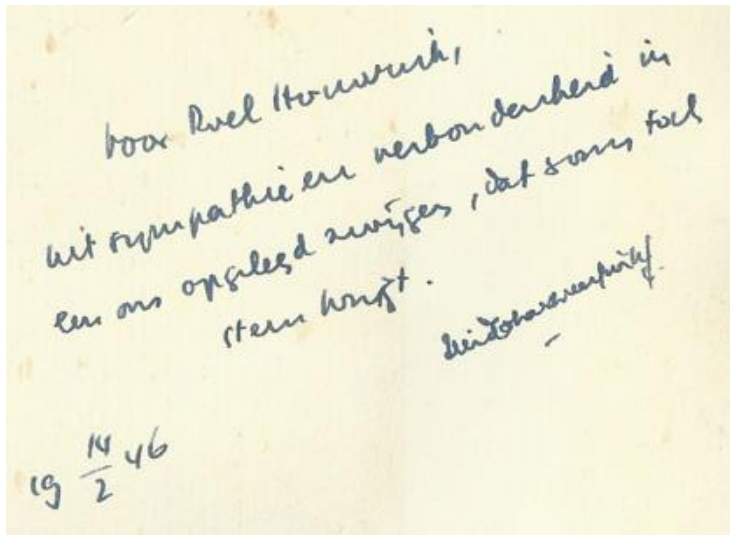 voor Roel Houwink,
uit sympathie en verbondenheid in
een ons opgelegd zwijgen, dat soms toch
stem krijgt.
19 14/2 46